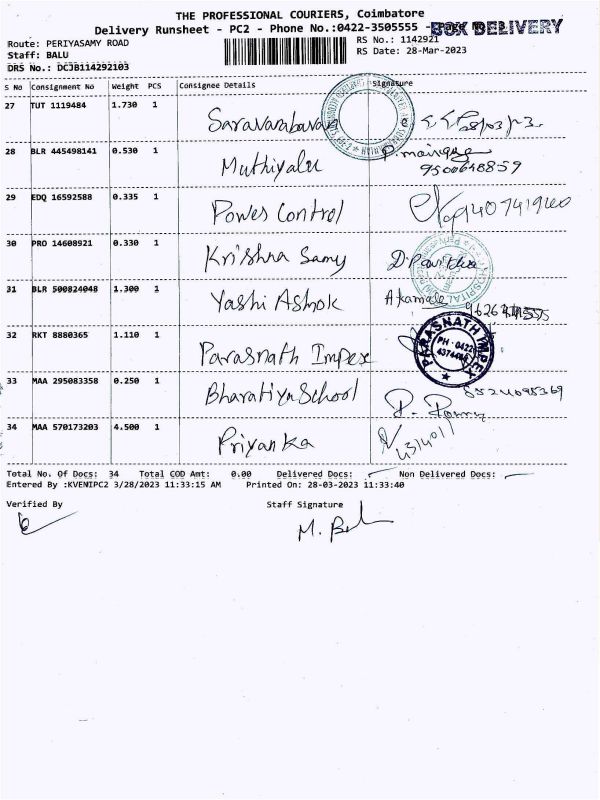 THE PROFESSIONAL COURIERS, Coimbatore
Delivery Runsheet - PC2 - Phone No.:0422-3505555 - BOX DELIVERY
Route: PERIYASAMY ROAD RS No.: 1142921
Staff: BALU RS Date: 28-Mar-2023
DRS No.: DCJB114292103
S No Consignment No Weight PCS Consignee Details Signature
27 TUT 1119484 1.730 1 Saravanabavan
28 BLR 445498141 0.530 1 Muthiyalu
9500648859
29 EDQ 16592588 0.335 1 Power Control
30 PRO 14608921 0.330 1 Krishna Samy D.Pavithra
HOSPITAL
31 BLR 500824048 1.300 1 Yashi Ashok A kamala
32 RKT 8880365 1.110 1 Parasnath Impex
PARASNATH IMPEX
PH - 0422
33 MAA 295083358 0.250 1 Bharatiya School
34 MAA 570173203 4.500 1 Priyanka
Total No. Of Docs: 34 Total COD Amt: 0.00 Delivered Docs: Non Delivered Docs:
Entered By :KVENIPC2 3/28/2023 11:33:15 AM Printed On: 28-03-2023 11:33:40
Verified By Staff Signature